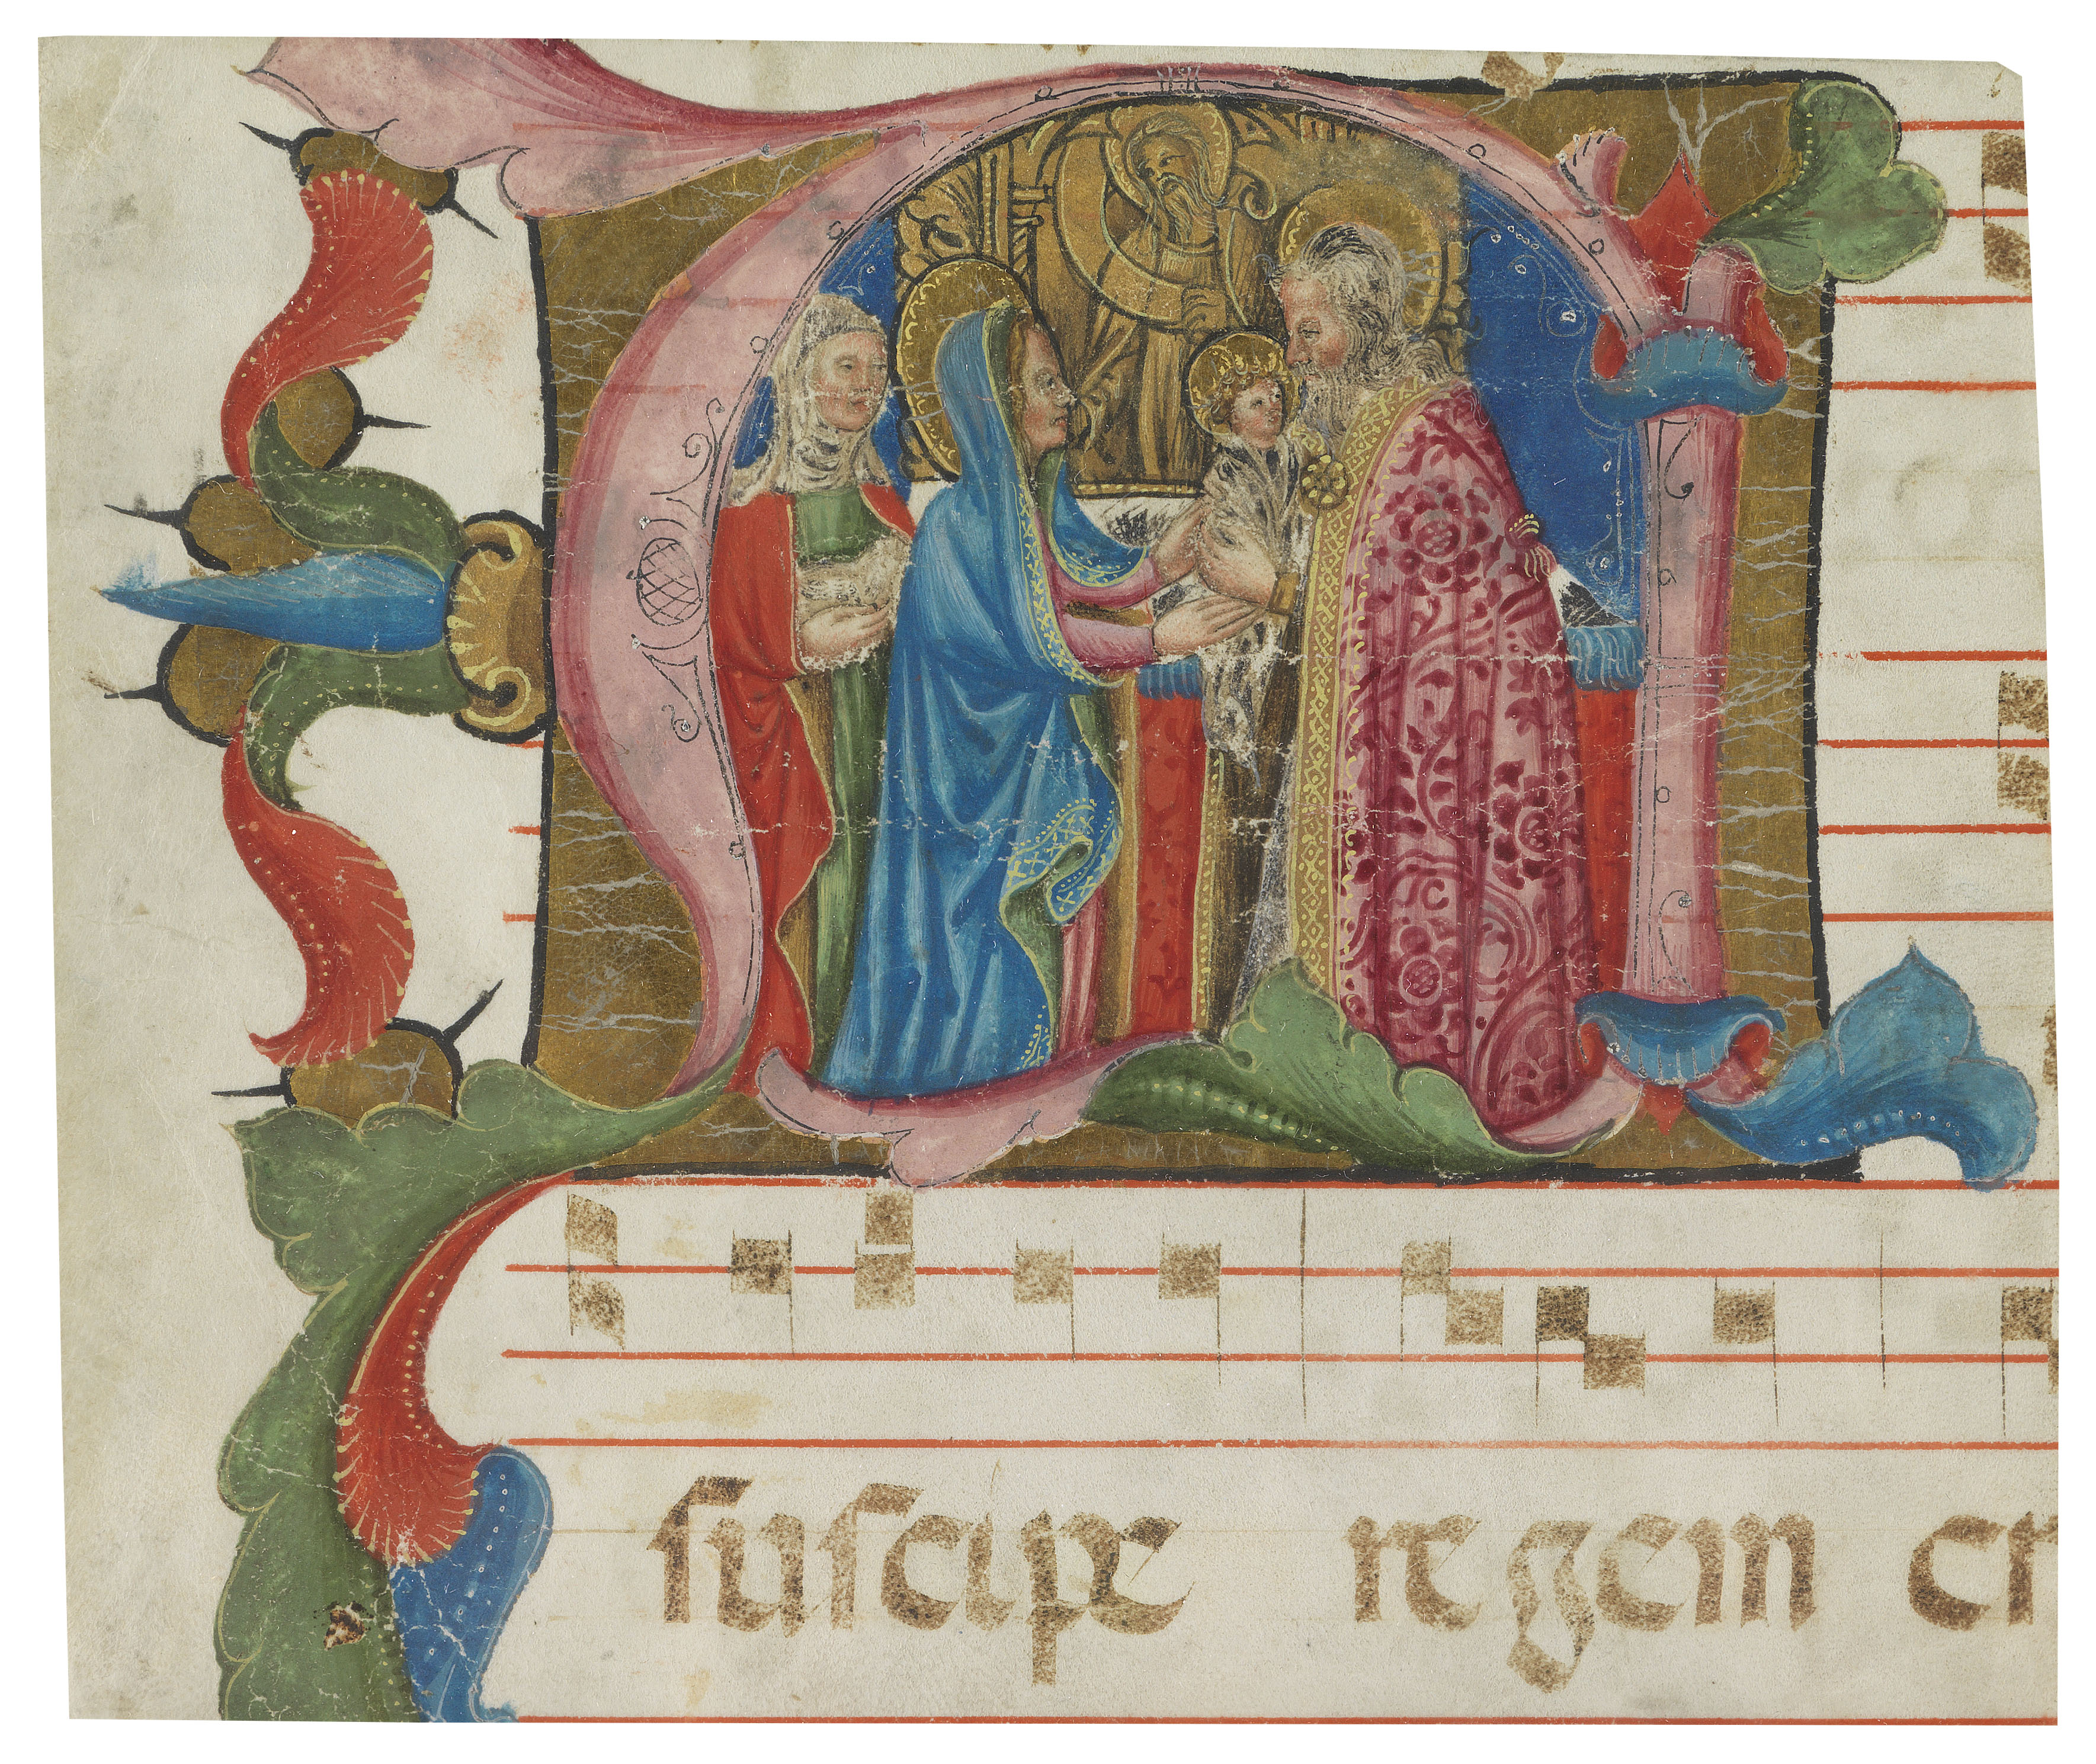 A
ſuſcipe re gem cr